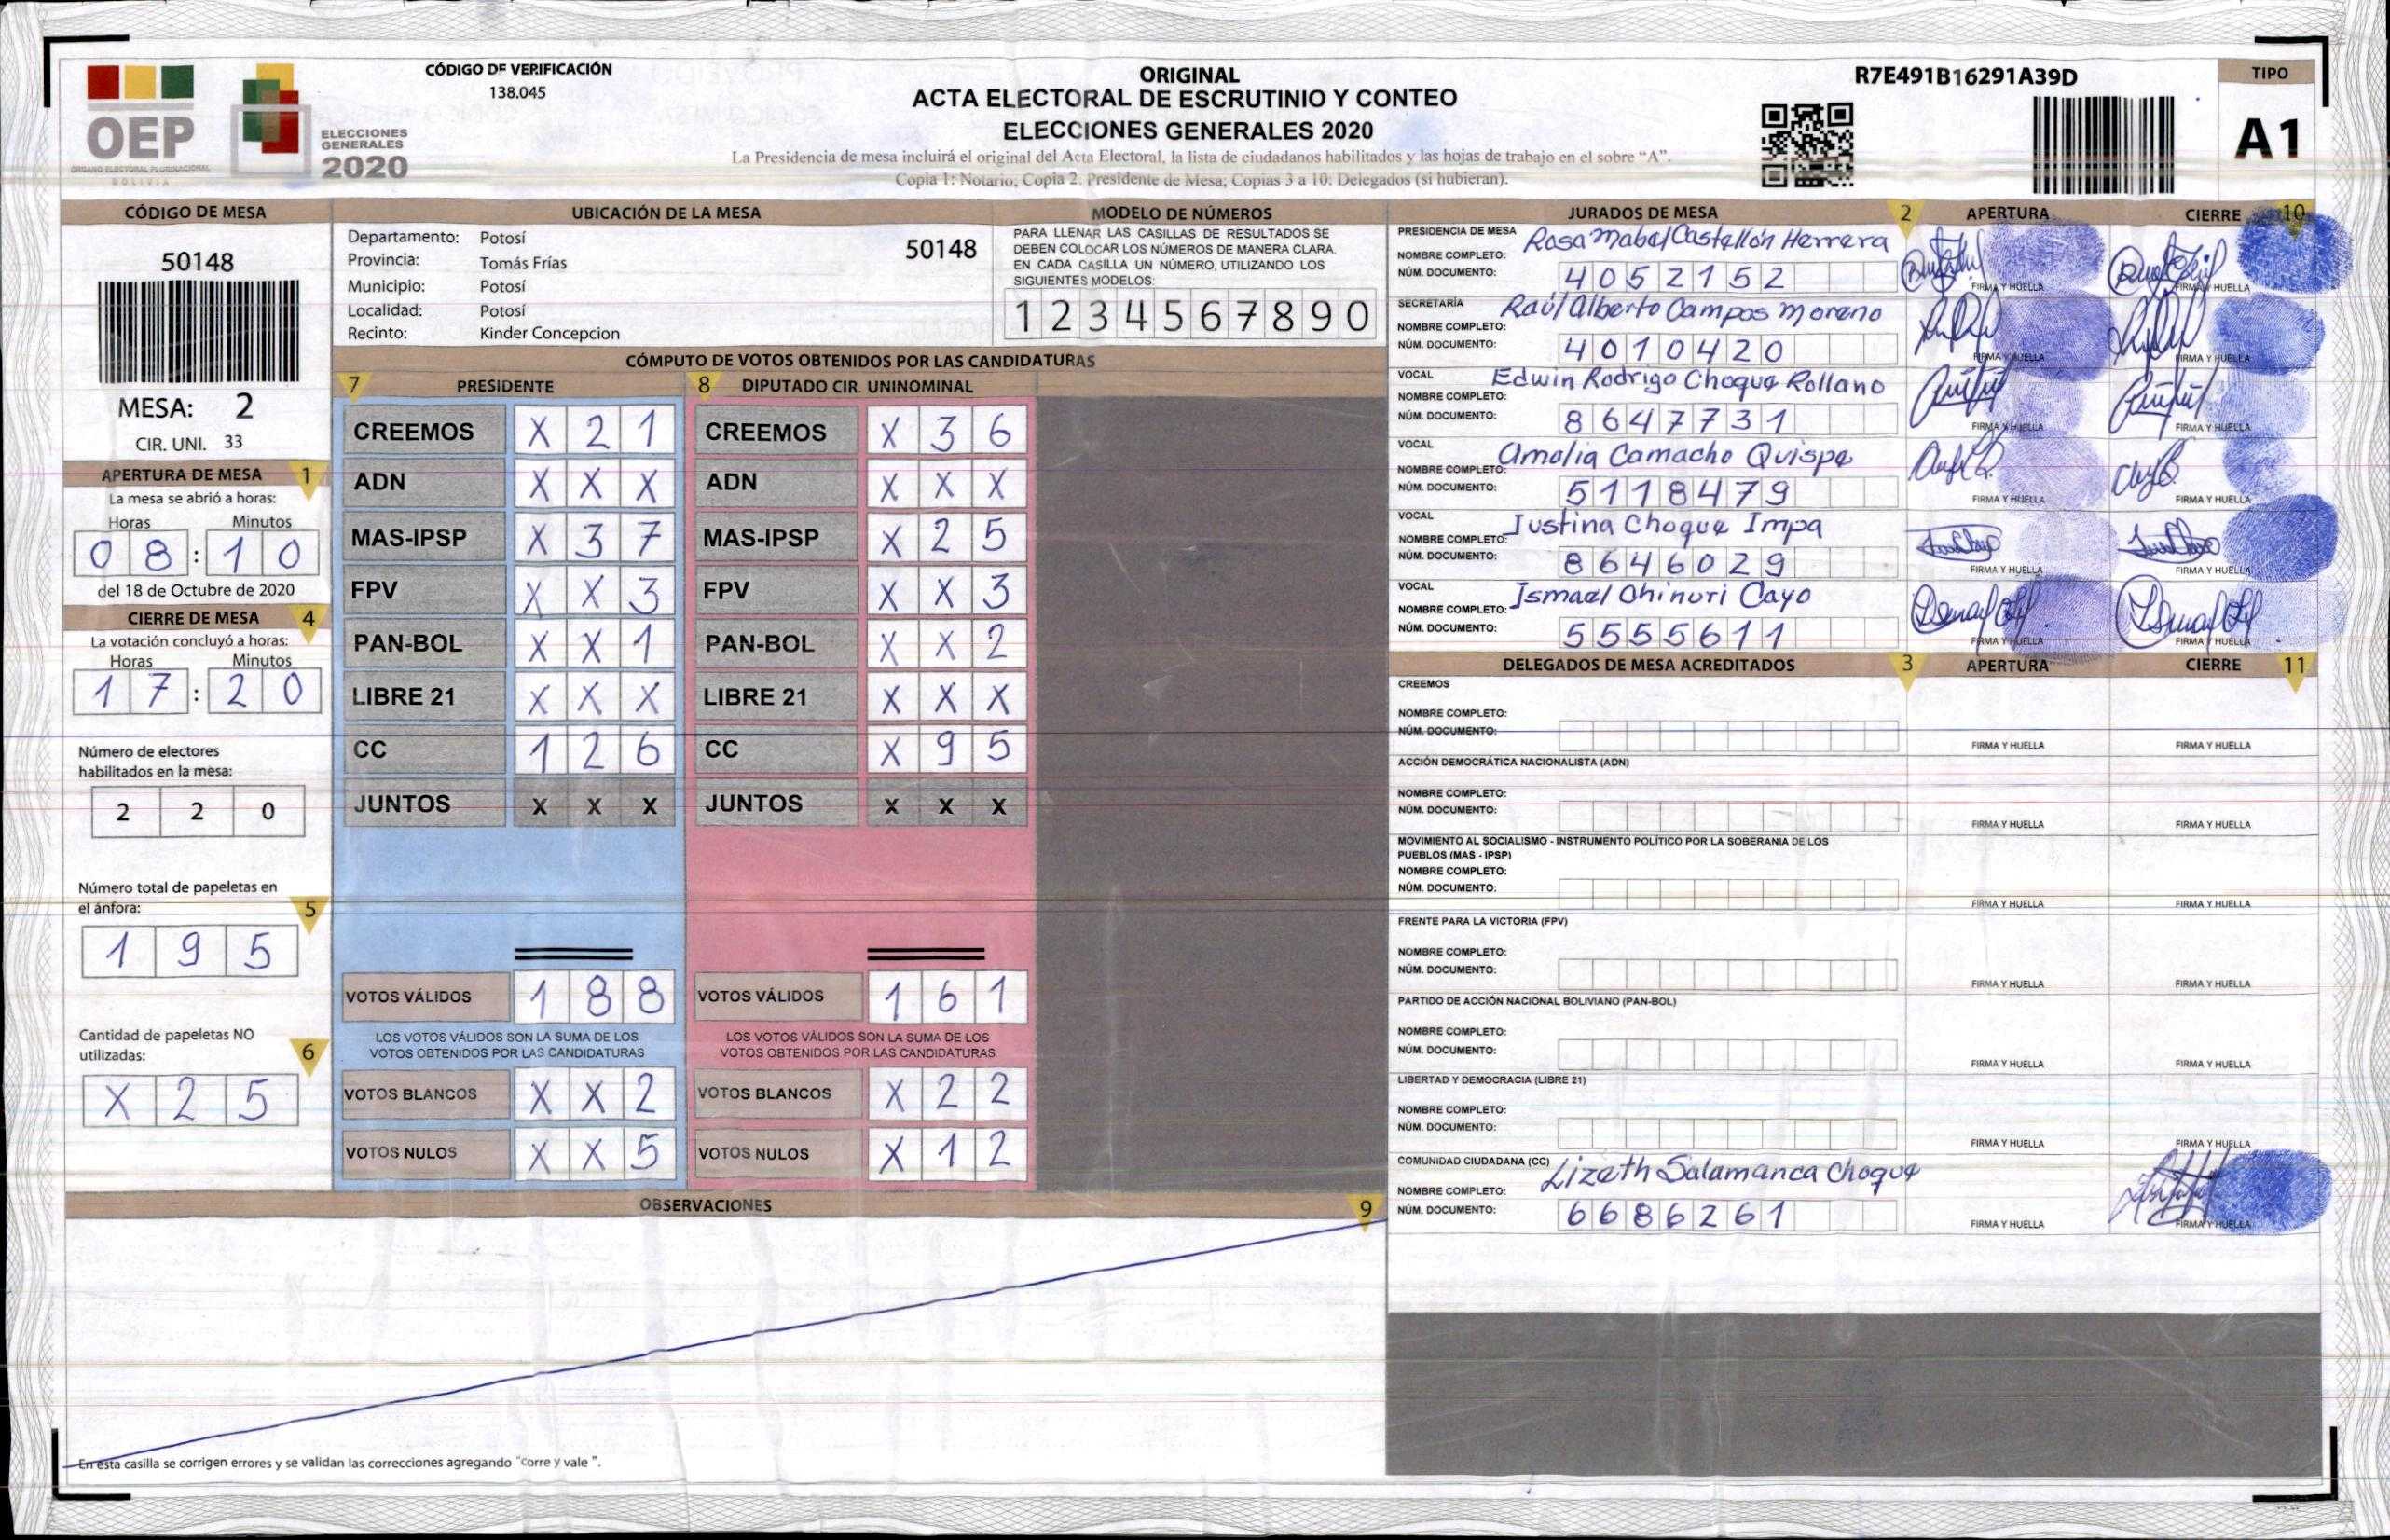 OEP
ÓRGANO ELECTORAL PLURINACIONAL
BOLIVIA
ELECCIONES
GENERALES
2020
CÓDIGO DE VERIFICACIÓN
138.045
ORIGINAL
ACTA ELECTORAL DE ESCRUTINIO Y CONTEO
ELECCIONES GENERALES 2020
La Presidencia de mesa incluirá el original del Acta Electoral, la lista de ciudadanos habilitados y las hojas de trabajo en el sobre “A”.
Copia 1: Notario; Copia 2. Presidente de Mesa; Copias 3 a 10: Delegados (si hubieran).
R7E491B16291A39D
TIPO
A1
CÓDIGO DE MESA
50148
MESA: 2
CIR. UNI. 33
APERTURA DE MESA 1
La mesa se abrió a horas:
Horas Minutos
08:10
del 18 de Octubre de 2020
CIERRE DE MESA 4
La votación concluyó a horas:
Horas Minutos
17:20
Número de electores
habilitados en la mesa:
2 2 0
Número total de papeletas en
el ánfora: 5
1 9 5
Cantidad de papeletas NO
utilizadas: 6
X 2 5
UBICACIÓN DE LA MESA
Departamento: Potosí 50148
Provincia: Tomás Frías
Municipio: Potosí
Localidad: Potosí
Recinto: Kinder Concepcion
MODELO DE NÚMEROS
PARA LLENAR LAS CASILLAS DE RESULTADOS SE
DEBEN COLOCAR LOS NÚMEROS DE MANERA CLARA.
EN CADA CASILLA UN NÚMERO, UTILIZANDO LOS
SIGUIENTES MODELOS:
1 2 3 4 5 6 7 8 9 0
CÓMPUTO DE VOTOS OBTENIDOS POR LAS CANDIDATURAS
7 PRESIDENTE 8 DIPUTADO CIR. UNINOMINAL
CREEMOS X 2 1 CREEMOS X 3 6
ADN X X X ADN X X X
MAS-IPSP X 3 7 MAS-IPSP X 2 5
FPV X X 3 FPV X X 3
PAN-BOL X X 1 PAN-BOL X X 2
LIBRE 21 X X X LIBRE 21 X X X
CC 1 2 6 CC X 9 5
JUNTOS X X X JUNTOS X X X
VOTOS VÁLIDOS 1 8 8 VOTOS VÁLIDOS 1 6 1
LOS VOTOS VÁLIDOS SON LA SUMA DE LOS LOS VOTOS VÁLIDOS SON LA SUMA DE LOS
VOTOS OBTENIDOS POR LAS CANDIDATURAS VOTOS OBTENIDOS POR LAS CANDIDATURAS
VOTOS BLANCOS X X 2 VOTOS BLANCOS X 2 2
VOTOS NULOS X X 5 VOTOS NULOS X 1 2
OBSERVACIONES 9
En esta casilla se corrigen errores y se validan las correcciones agregando "corre y vale ".
JURADOS DE MESA 2 APERTURA CIERRE 10
PRESIDENCIA DE MESA
NOMBRE COMPLETO: Rosa Mabel Castellón Herrera
NÚM. DOCUMENTO: 4052152
FIRMA Y HUELLA FIRMA Y HUELLA
SECRETARÍA
NOMBRE COMPLETO: Raúl Alberto Campos Moreno
NÚM. DOCUMENTO: 4010420
FIRMA Y HUELLA FIRMA Y HUELLA
VOCAL
NOMBRE COMPLETO: Edwin Rodrigo Choque Rollano
NÚM. DOCUMENTO: 8647731
FIRMA Y HUELLA FIRMA Y HUELLA
VOCAL
NOMBRE COMPLETO: Amalia Camacho Quispe
NÚM. DOCUMENTO: 5118479
FIRMA Y HUELLA FIRMA Y HUELLA
VOCAL
NOMBRE COMPLETO: Justina Choque Impa
NÚM. DOCUMENTO: 8646029
FIRMA Y HUELLA FIRMA Y HUELLA
VOCAL
NOMBRE COMPLETO: Ismael Chinuri Cayo
NÚM. DOCUMENTO: 5555611
FIRMA Y HUELLA FIRMA Y HUELLA
DELEGADOS DE MESA ACREDITADOS 3 APERTURA CIERRE 11
CREEMOS
NOMBRE COMPLETO:
NÚM. DOCUMENTO:
FIRMA Y HUELLA FIRMA Y HUELLA
ACCIÓN DEMOCRÁTICA NACIONALISTA (ADN)
NOMBRE COMPLETO:
NÚM. DOCUMENTO:
FIRMA Y HUELLA FIRMA Y HUELLA
MOVIMIENTO AL SOCIALISMO - INSTRUMENTO POLÍTICO POR LA SOBERANIA DE LOS
PUEBLOS (MAS - IPSP)
NOMBRE COMPLETO:
NÚM. DOCUMENTO:
FIRMA Y HUELLA FIRMA Y HUELLA
FRENTE PARA LA VICTORIA (FPV)
NOMBRE COMPLETO:
NÚM. DOCUMENTO:
FIRMA Y HUELLA FIRMA Y HUELLA
PARTIDO DE ACCIÓN NACIONAL BOLIVIANO (PAN-BOL)
NOMBRE COMPLETO:
NÚM. DOCUMENTO:
FIRMA Y HUELLA FIRMA Y HUELLA
LIBERTAD Y DEMOCRACIA (LIBRE 21)
NOMBRE COMPLETO:
NÚM. DOCUMENTO:
FIRMA Y HUELLA FIRMA Y HUELLA
COMUNIDAD CIUDADANA (CC)
NOMBRE COMPLETO: Lizeth Salamanca Choque
NÚM. DOCUMENTO: 6686261
FIRMA Y HUELLA FIRMA Y HUELLA